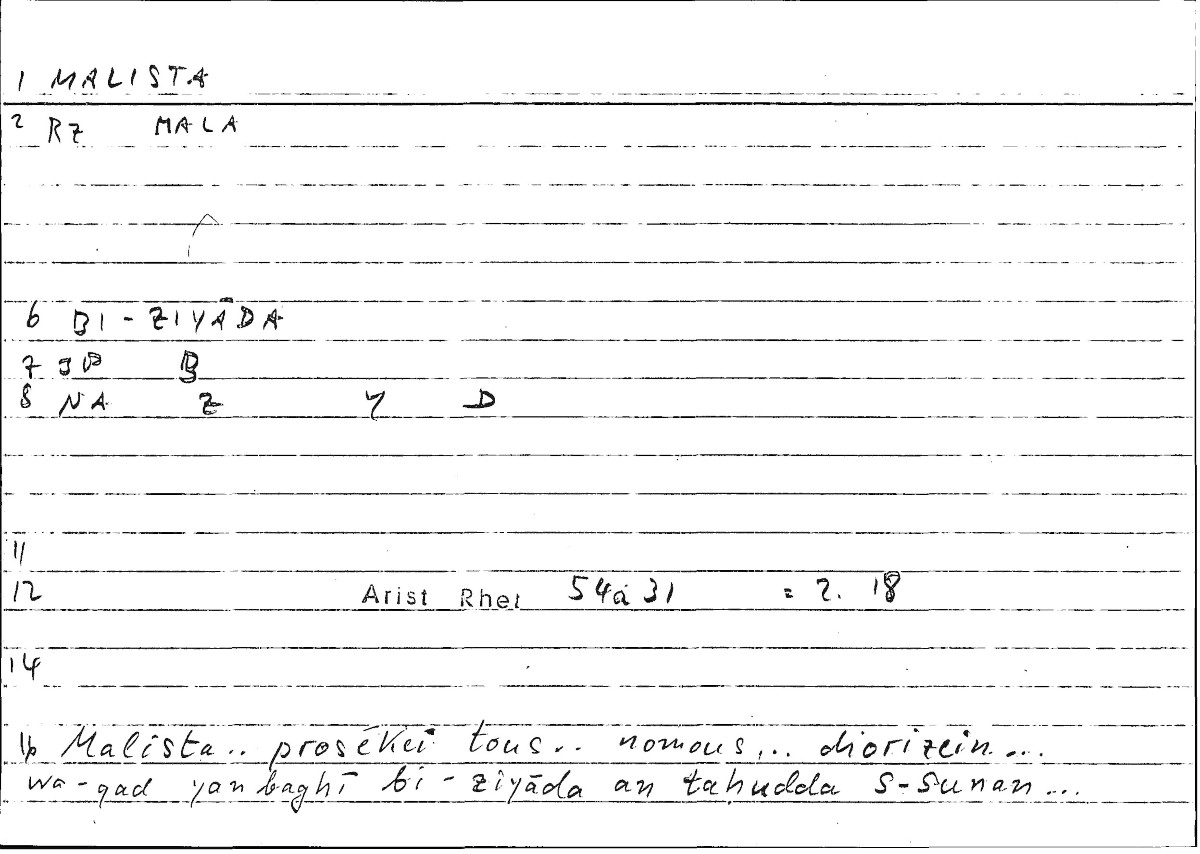 1 MALISTA
2 RZ MALA
6 BI-ZIYĀDA
7 JP B
8 NA Z Y D
11
12 Arist Rhet 54a31 = 2.18
14
16 Malista.. prosēkei tous.. nomous... diorizein...
wa-qad yanbaghī bi-ziyāda an tahudda s-sunan...